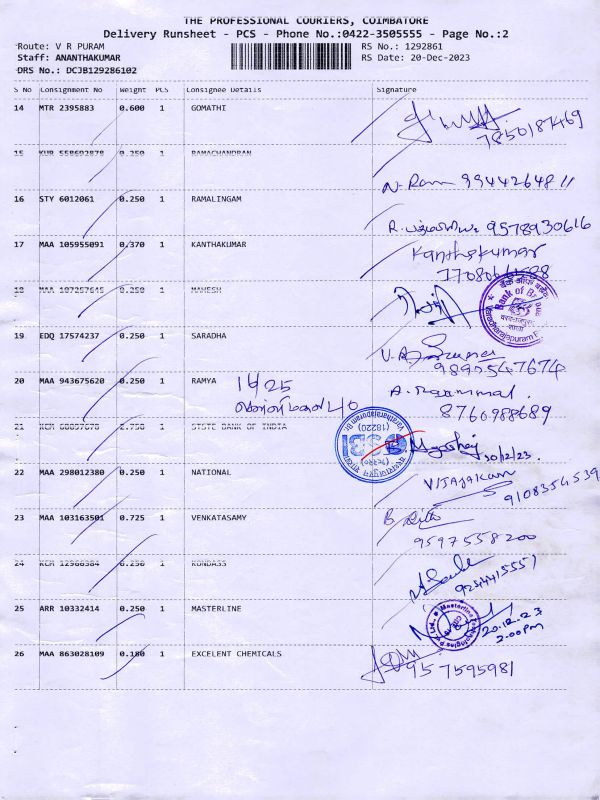 THE PROFESSIONAL COURIERS, COIMBATORE
Delivery Runsheet - PCS - Phone No.:0422-3505555 - Page No.:2
Route: V R PURAM
RS No.: 1292861
Staff: ANANTHAKUMAR
RS Date: 20-Dec-2023
DRS No.: DCJB129286102
S No Consignment No Weight PCS Consignee Details Signature
14 MTR 2395883 0.600 1 GOMATHI
7850187469
15 KUB 558692878 0.250 1 RAMACHANDRAN
N. Ram 9944264811
16 STY 6012061 0.250 1 RAMALINGAM
R. 9578930616
17 MAA 105955091 0.370 1 KANTHAKUMAR Kanthakumar
18 MAA 107257645 0.250 1 MAHESH
19 EDQ 17574237 0.250 1 SARADHA
9892547674
20 MAA 943675620 0.250 1 RAMYA 14/25
8760988689
21 KCM 60097678 2.750 1 STATE BANK OF INDIA
20/12/23.
22 MAA 298012380 0.250 1 NATIONAL VIJAJAKUM
9108354539
23 MAA 103163501 0.725 1 VENKATASAMY
9597558200
24 KCM 12988384 0.250 1 KONDASS
25 ARR 10332414 0.250 1 MASTERLINE
20.12.23
2.00 PM
26 MAA 863028109 0.180 1 EXCELENT CHEMICALS
957595981